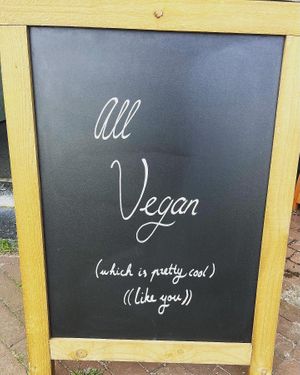 all
Vegan
(which is pretty cool)
((like you))